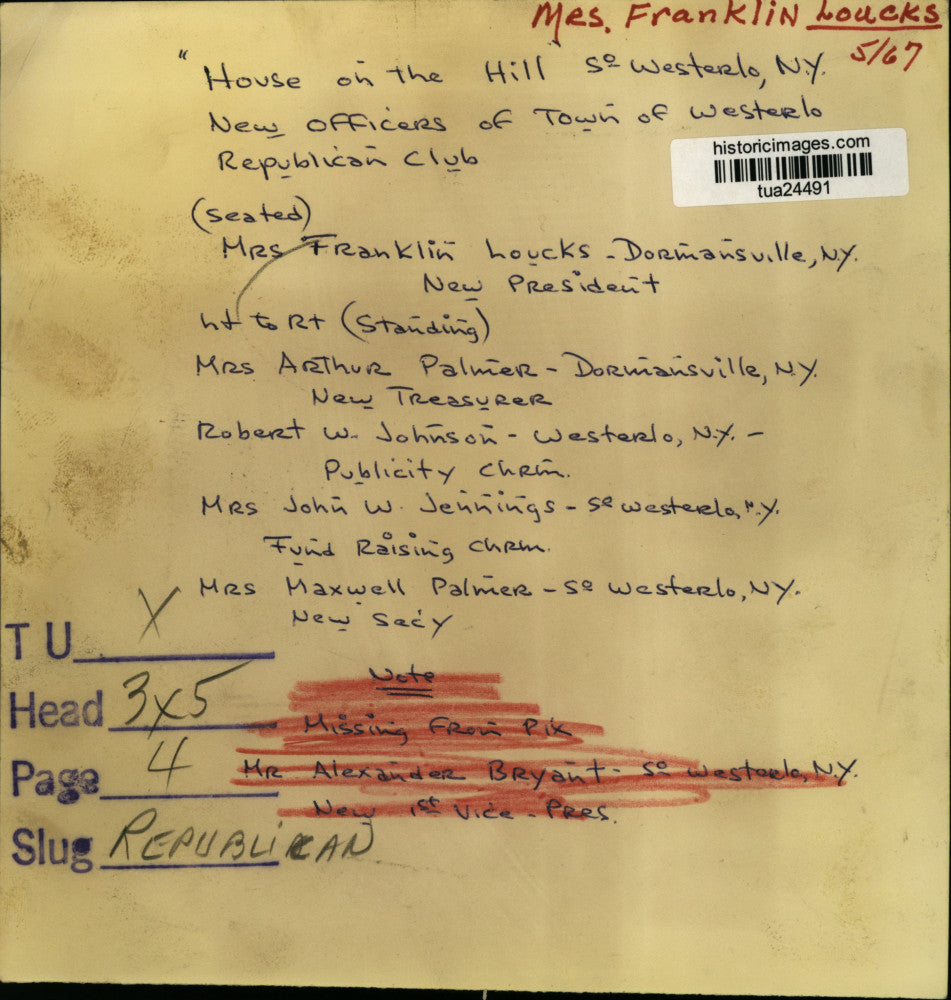 Mrs. Franklin Loucks
5/67
"House on the Hill" So Westerlo, N.Y.
New Officers of Town of Westerlo
Republican Club
historicimages.com
tua24491
(seated)
Mrs Franklin Loucks - Dormansville, N.Y.
New President
Lt to Rt (Standing)
Mrs Arthur Palmer - Dormansville, N.Y.
New Treasurer
Robert W. Johnson - Westerlo, N.Y. -
Publicity Chrm.
Mrs John W. Jennings - So Westerlo, N.Y.
Fund Raising Chrm.
Mrs Maxwell Palmer - So Westerlo, N.Y.
New Sec'y
TU X
Note
Head 3x5
Missing From Pix
Page 4
Mr Alexander Bryant - So Westerlo, N.Y.
New 1st Vice - Pres.
Slug REPUBLICAN